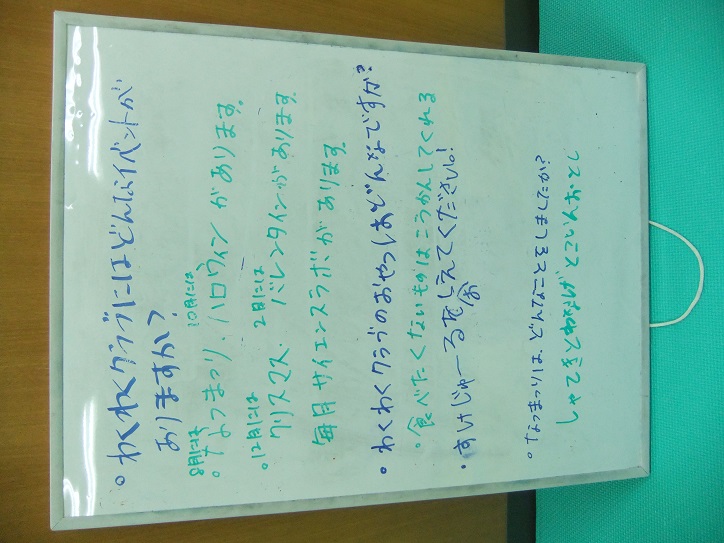 。わくわくクラブにはどんなイベントが
ありますか?
8月には 10月には
。なつまつり、ハロウィンがあります。
12月には 2月には
。クリスマス バレンタインがあります
毎月サイエンスラボがあります。
・わくわくクラブのおやつはどんなですか?
・食べたくないものはこうかんしてくれる
・すけじゅーるをしえてください!
お
。なつまつりは、どんなことをしましたか?
しゃてきとわなげ